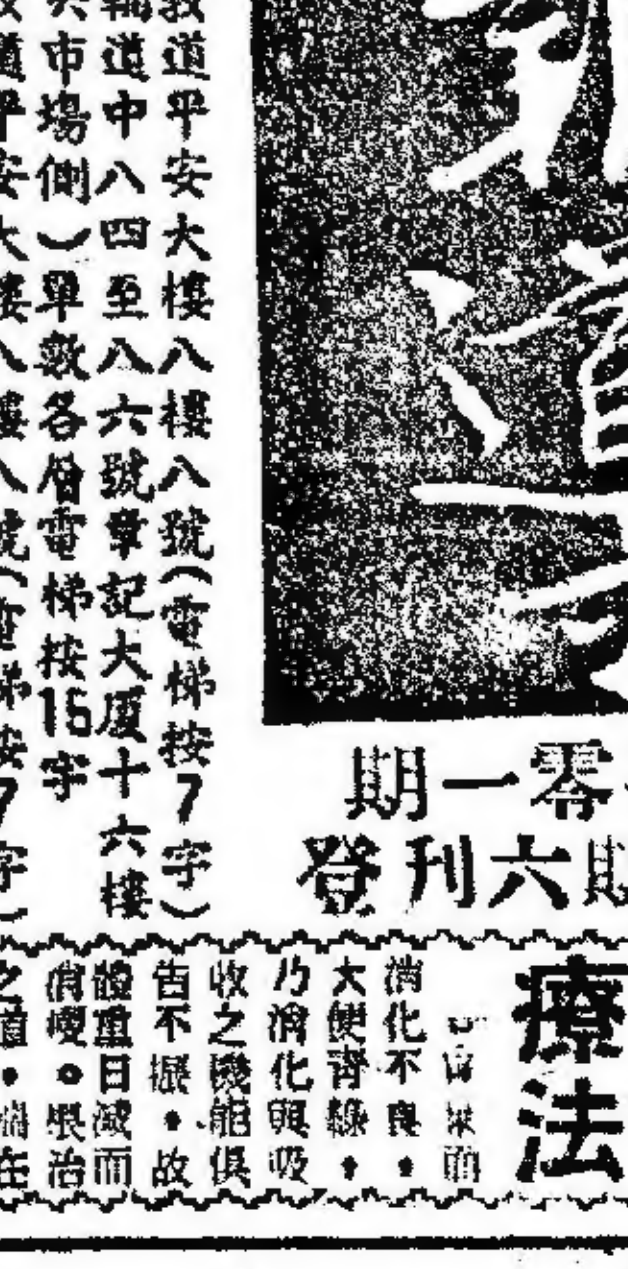 道
零一期
期六刊登
敎道平安大樓八樓八號(電梯按7字)
輔道中八四至八六號章記大厦十六樓
市場側)單數各層電梯按16字
敎道平安大樓八樓八號(電梯按7字)
療法
面
消化不良•
大便青綠•
乃消化與吸
收之機能俱
告不振•故
體重日減而
消瘦。根治
之道•端在